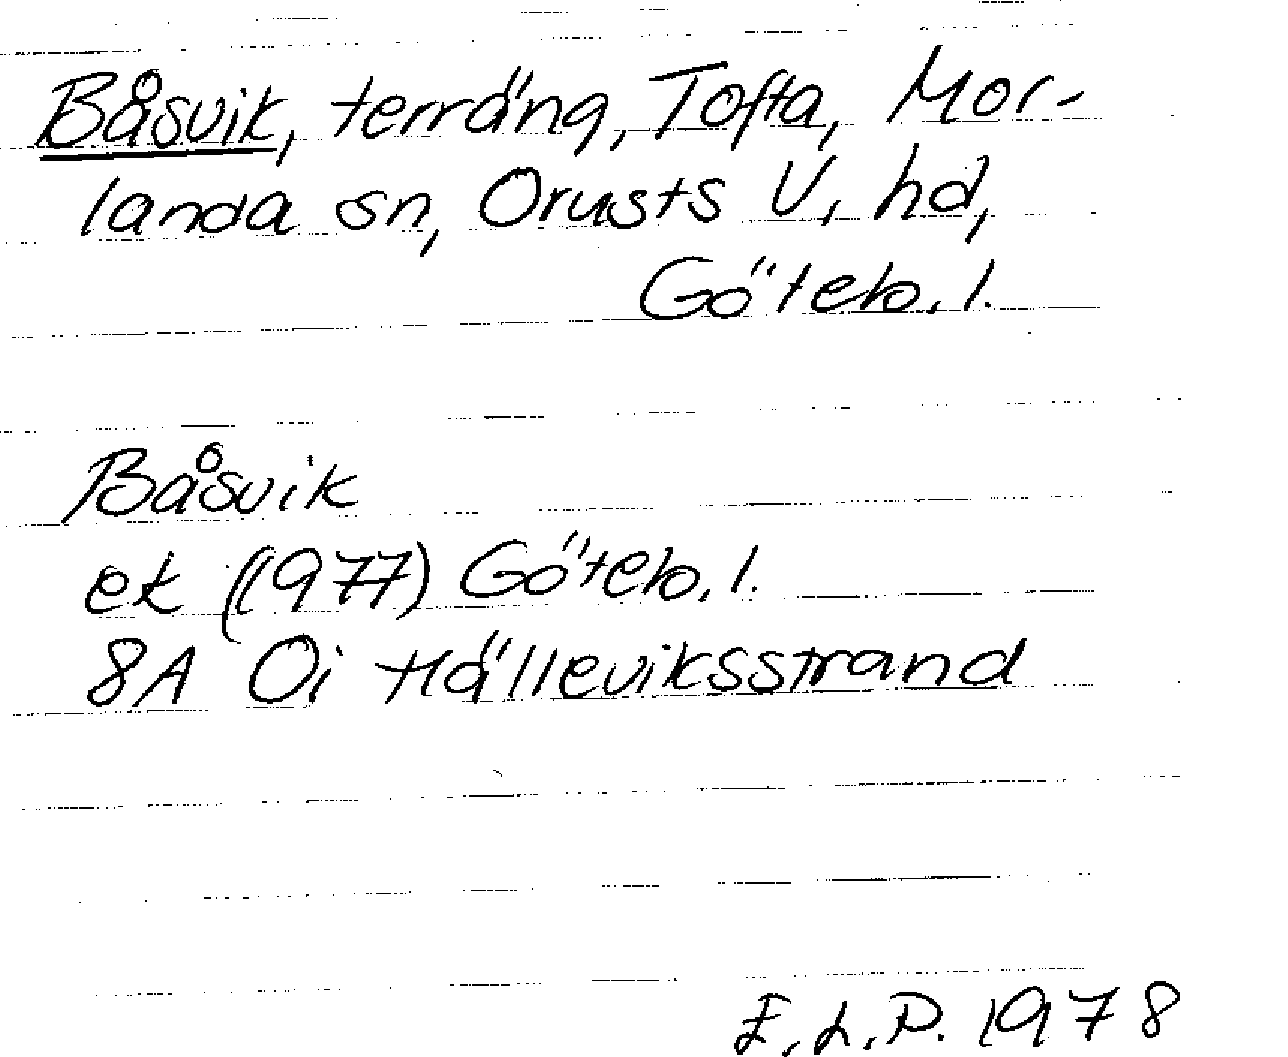 Båsvik, terräng, Tofta, Mor-
landa sn, Orusts V, hd,
Göteb. l.
Båsvik
ek (1977) Göteb. l.
8A Oi Hälleviksstrand
E.L.P. 1978